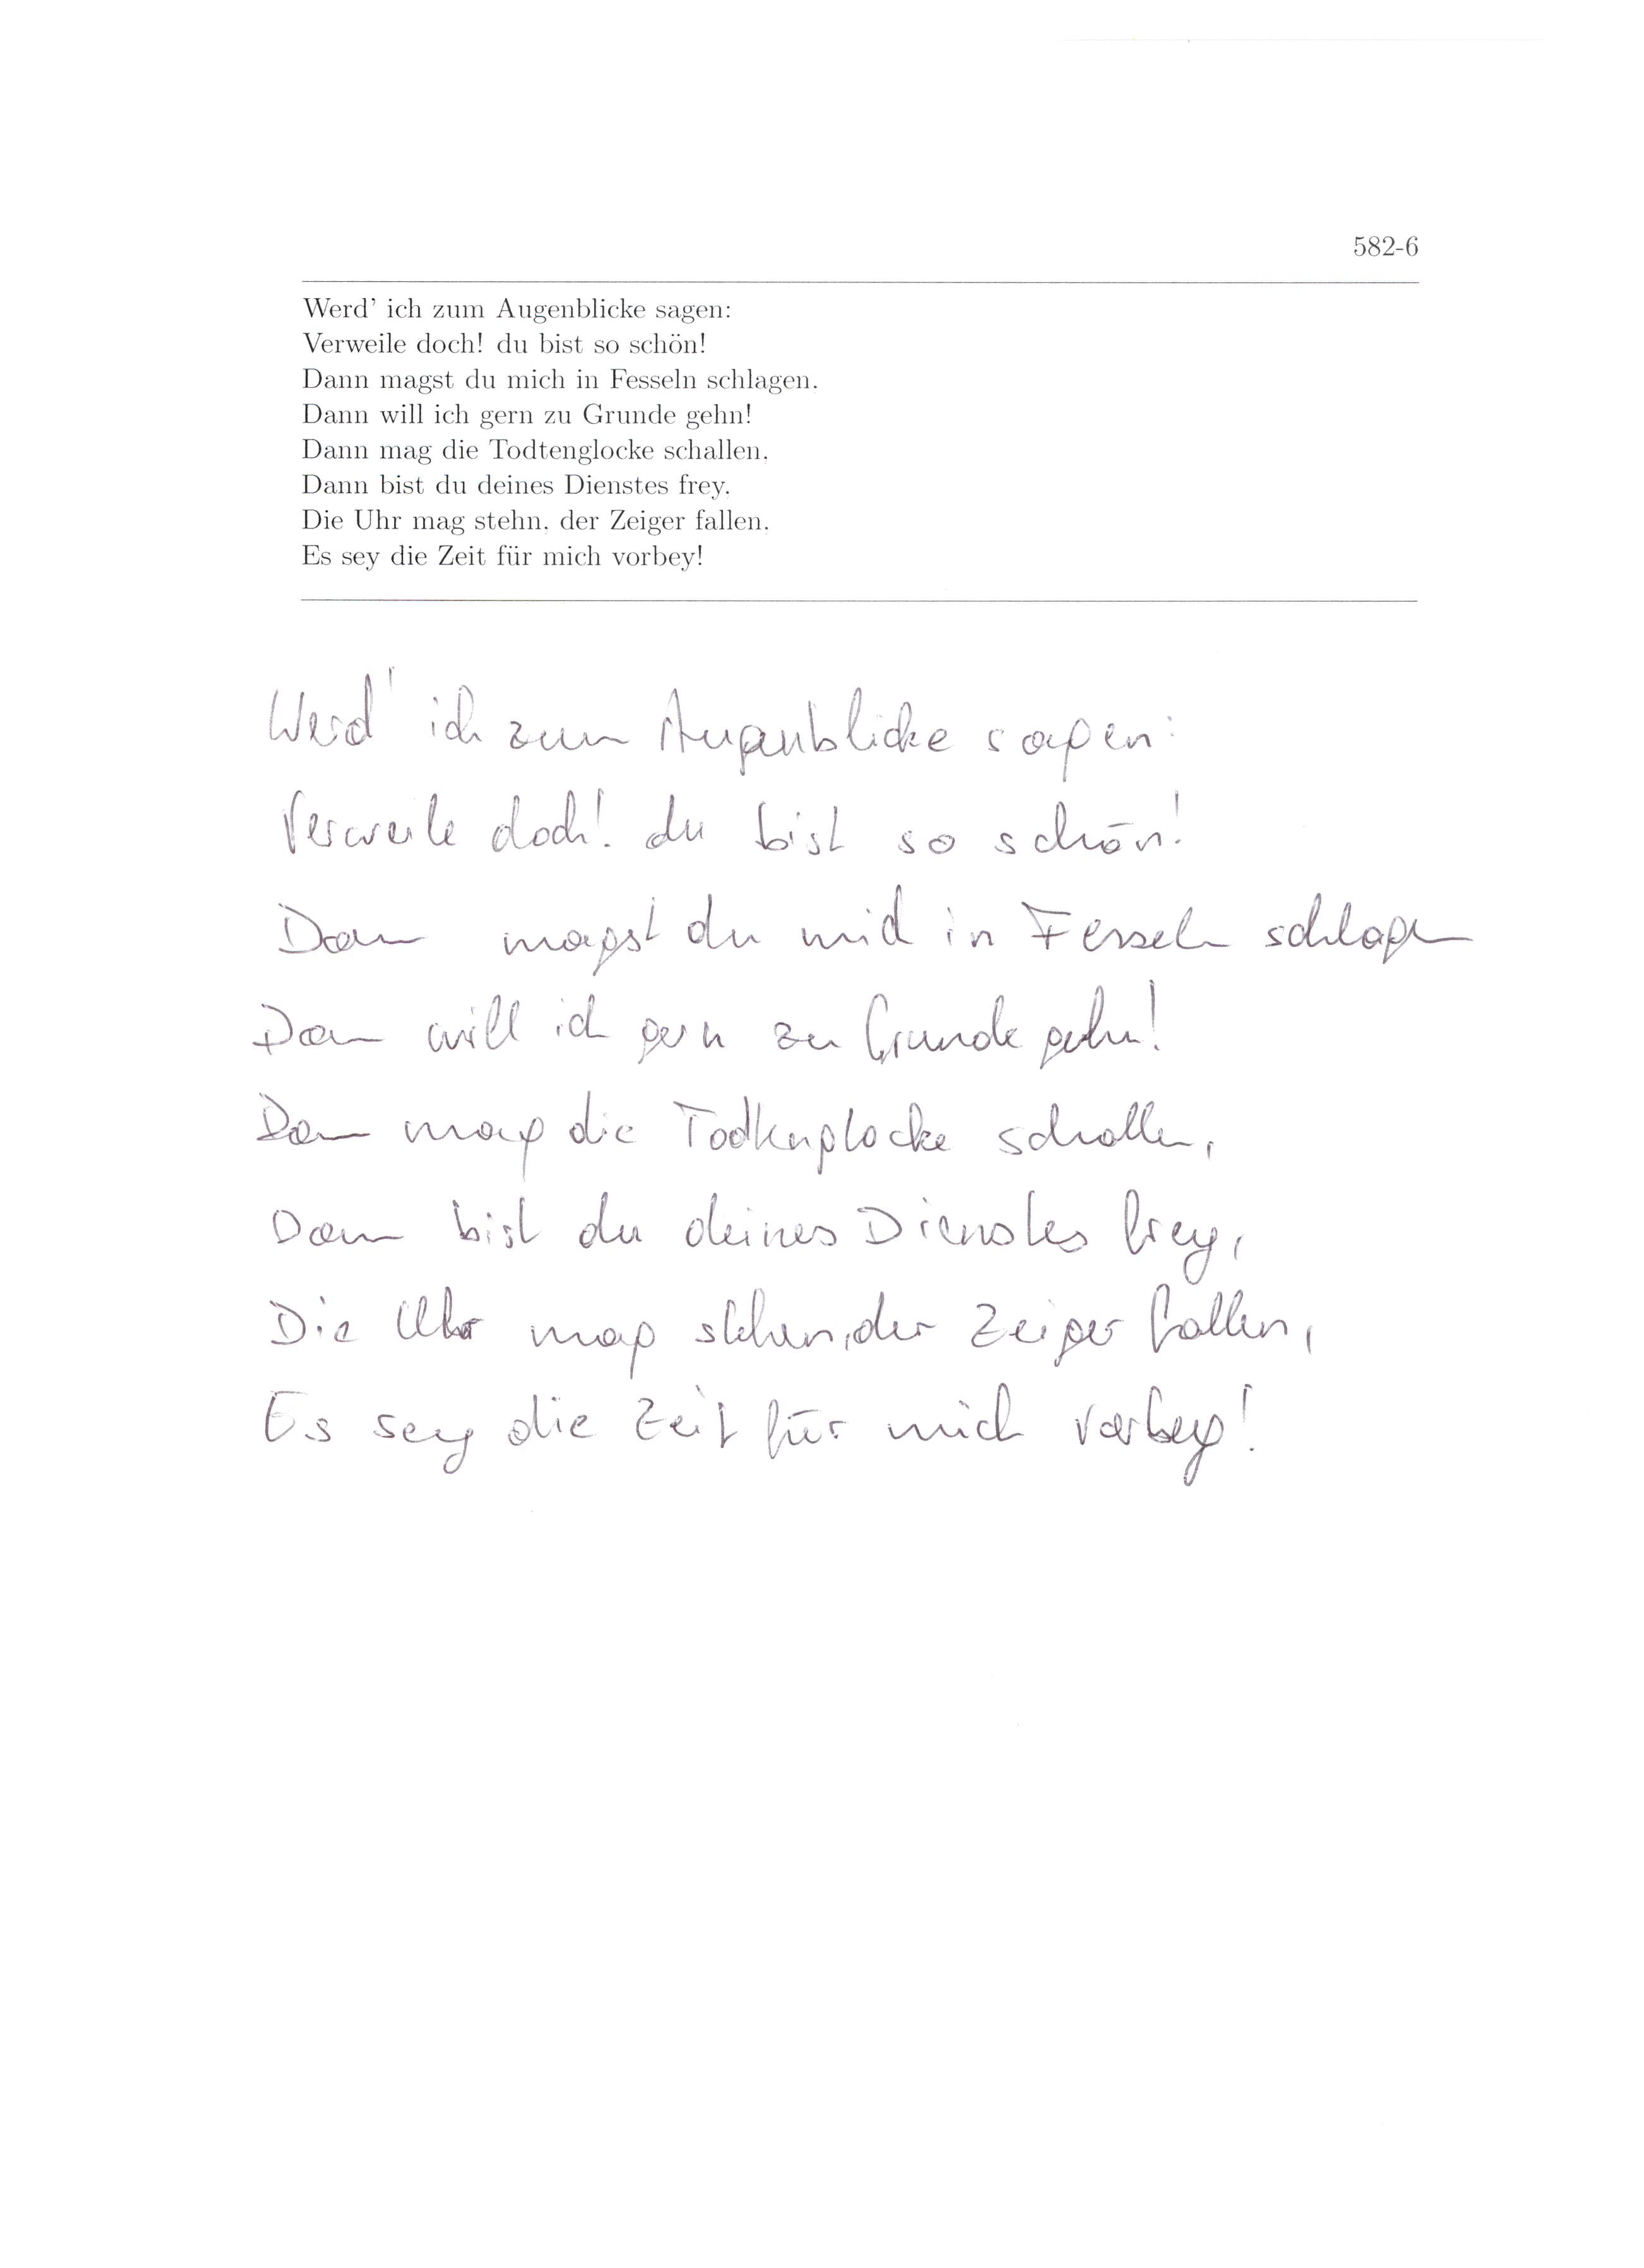 582-6
Werd' ich zum Augenblicke sagen:
Verweile doch! du bist so schön!
Dann magst du mich in Fesseln schlagen.
Dann will ich gern zu Grunde gehn!
Dann mag die Todtenglocke schallen.
Dann bist du deines Dienstes frey.
Die Uhr mag stehn. der Zeiger fallen.
Es sey die Zeit für mich vorbey!
Werd' ich zum Augenblicke sagen:
Verweile doch! du bist so schön!
Dann magst du mich in Fesseln schlagen
Dann will ich gern zu Grunde gehn!
Dann mag die Todtenglocke schallen,
Dann bist du deines Dienstes frey,
Die Uhr mag stehen, der Zeiger fallen,
Es sey die Zeit für mich vorbey!